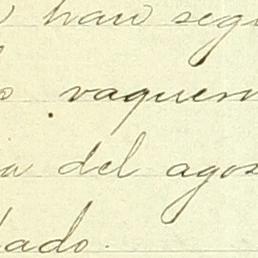 han segu
vaquen
a del agos
dado.